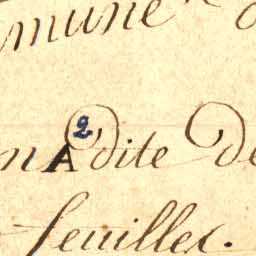 mune
2
n A dite de
feuilles.